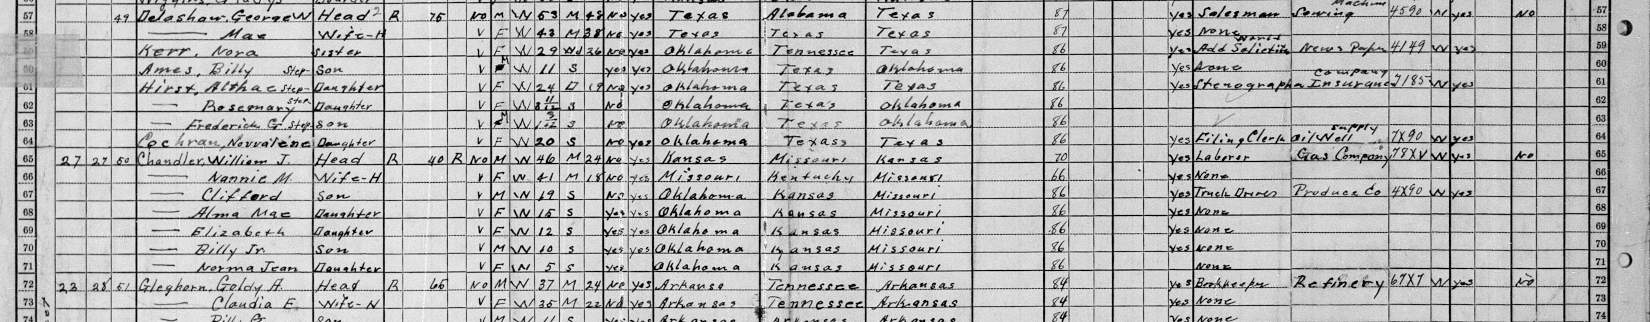 57 49 Delashaw, George W Head 2 R 75 No M W 53 M 48 No yes Texas Alabama Texas 87 yes Salesman Sewing Machine 4590 W yes No 57
58 — Mae Wife-H V F W 43 M 38 No yes Texas Texas Texas 87 yes None 58
Kerr, Nora Sister V F W 29 Wd 26 No yes Oklahoma Tennessee Texas 86 yes News Paper 4149 W yes 59
60 Ames, Billy Step Son V M W 11 S yes yes Oklahoma Texas Oklahoma 86 yes None 60
61 Hirst, Althae Step- Daughter V F W 24 D 19 No yes Oklahoma Texas Texas 86 yes Stenographer Insurance Company 7185 W yes 61
62 — Rosemary Step Daughter V F W 11/12 S No Oklahoma Texas Oklahoma 86 62
63 — Frederick G. Step- Son V M W S No Oklahoma Texas Oklahoma 86 63
64 Cochran, Novvalene Daughter V F W 20 S No yes Oklahoma Texas Texas 86 yes Filing Clerk Oil Well Supply 7X90 W yes 64
65 27 27 50 Chandler, William J. Head R 40 R No M W 46 M 24 No yes Kansas Missouri Kansas 70 yes Laborer Gas Company 78XV W yes No 65
66 — Nannie M. Wife-H V F W 41 M 18 No yes Missouri Kentucky Missouri 66 yes None 66
67 — Clifford Son V M W 19 S No yes Oklahoma Kansas Missouri 86 yes Truck Driver Produce Co 4X90 W yes 67
68 — Alma Mae Daughter V F W 15 S yes yes Oklahoma Kansas Missouri 86 yes None 68
69 — Elizabeth Daughter V F W 12 S yes yes Oklahoma Kansas Missouri 86 yes None 69
70 — Billy Jr. Son V M W 10 S yes yes Oklahoma Kansas Missouri 86 yes None 70
71 — Norma Jean Daughter V F W 5 S yes Oklahoma Kansas Missouri 86 None 71
72 23 28 51 Gleghorn, Goldy A. Head R 65 No M W 37 M 24 No yes Arkansa Tennessee Arkansas 84 yes Bookkeeper Refinery 67X7 W yes No 72
73 — Claudia E. Wife-H V F W 35 M 22 No yes Arkansas Tennessee Arkansas 84 yes None 73
74 V M W 11 S yes yes Arkansas Arkansas Arkansas 84 yes None 74